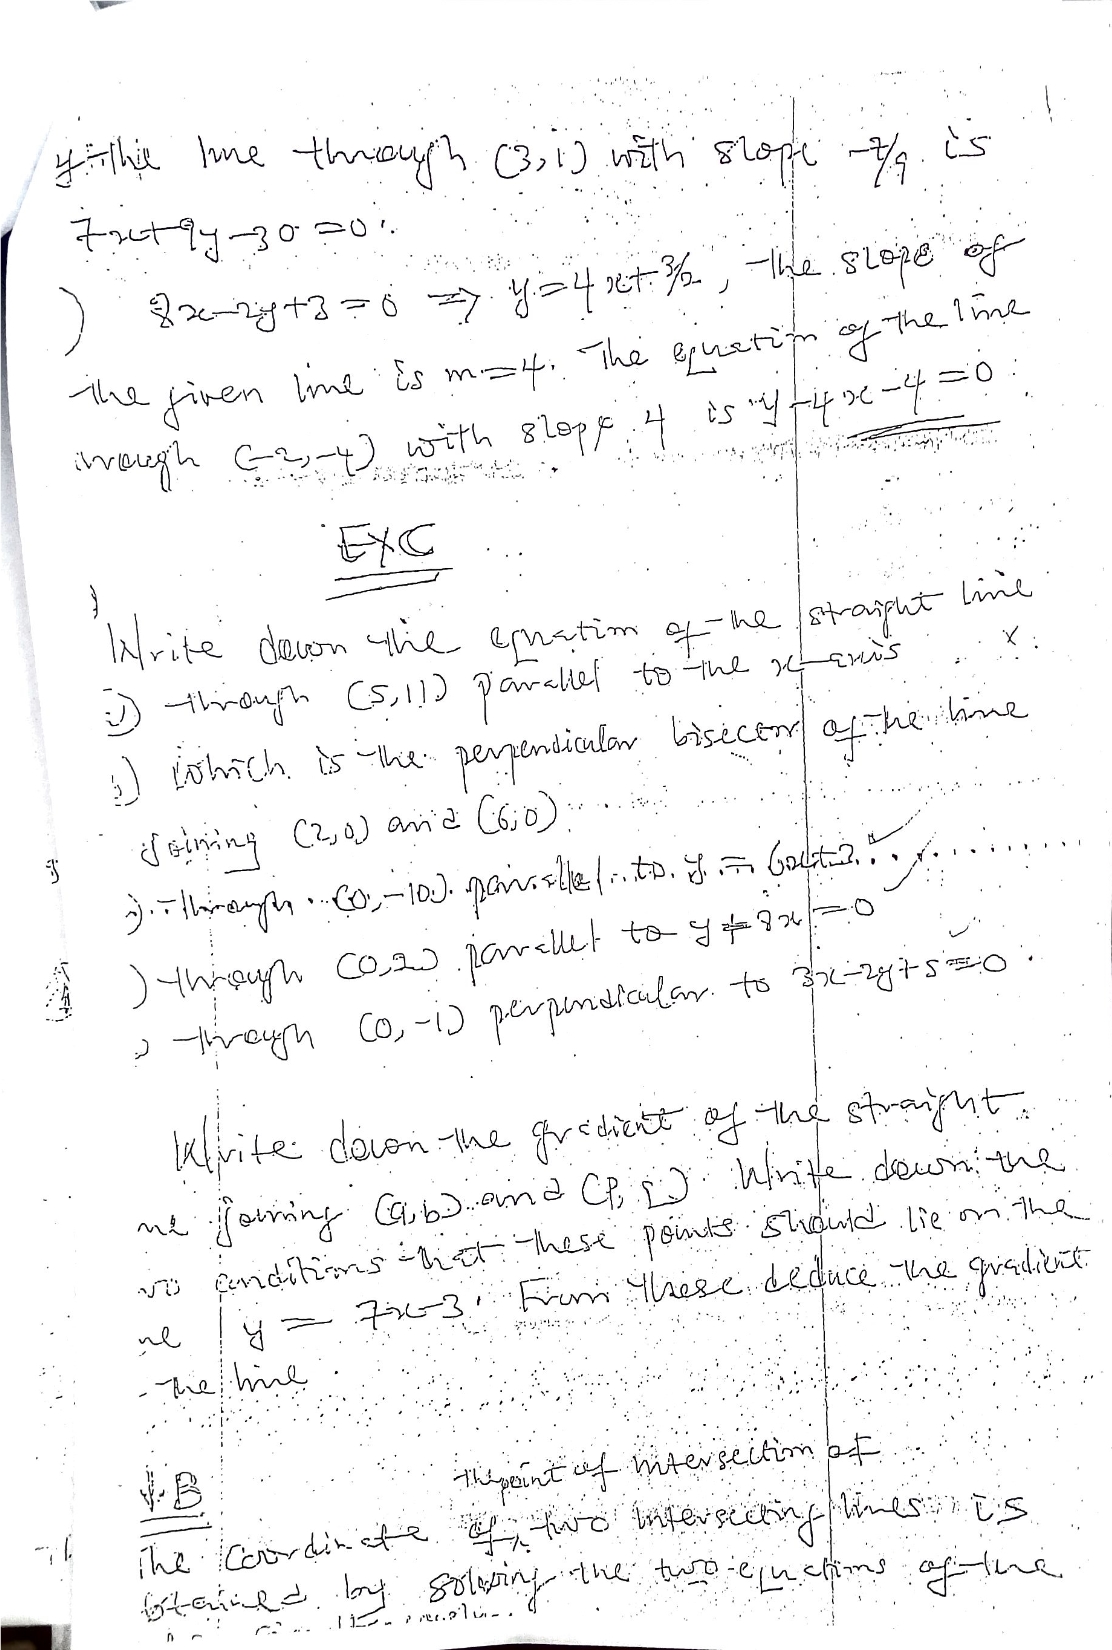 line through (3,1) with slope -7/9 is
7x+9y-30=0.
) 8x-2y+3=0 => y=4x+3/2, the slope of
the given line is m=4. The equation of the line
hrough (-2,-4) with slope 4 is y-4x-4=0
EXC
Write down the equation of the straight line
i) through (5,11) parallel to the x-axis
i) which is the perpendicular bisector of the line
joining (2,0) and (6,0)
). through (0,-10). parallel to y = 6x+3.
) through (0,2) parallel to y+8x=0
) through (0,-1) perpendicular to 3x-2y+5=0.
Write down the gradient of the straight
ne joining (a,b) and (p,q). Write down the
wo conditions that these points should lie on the
ne y = 7x-3. From these deduce the gradient
the line
N.B
the point of intersection of
The coordinate of two intersecting lines is
obtained by solving the two equations of the